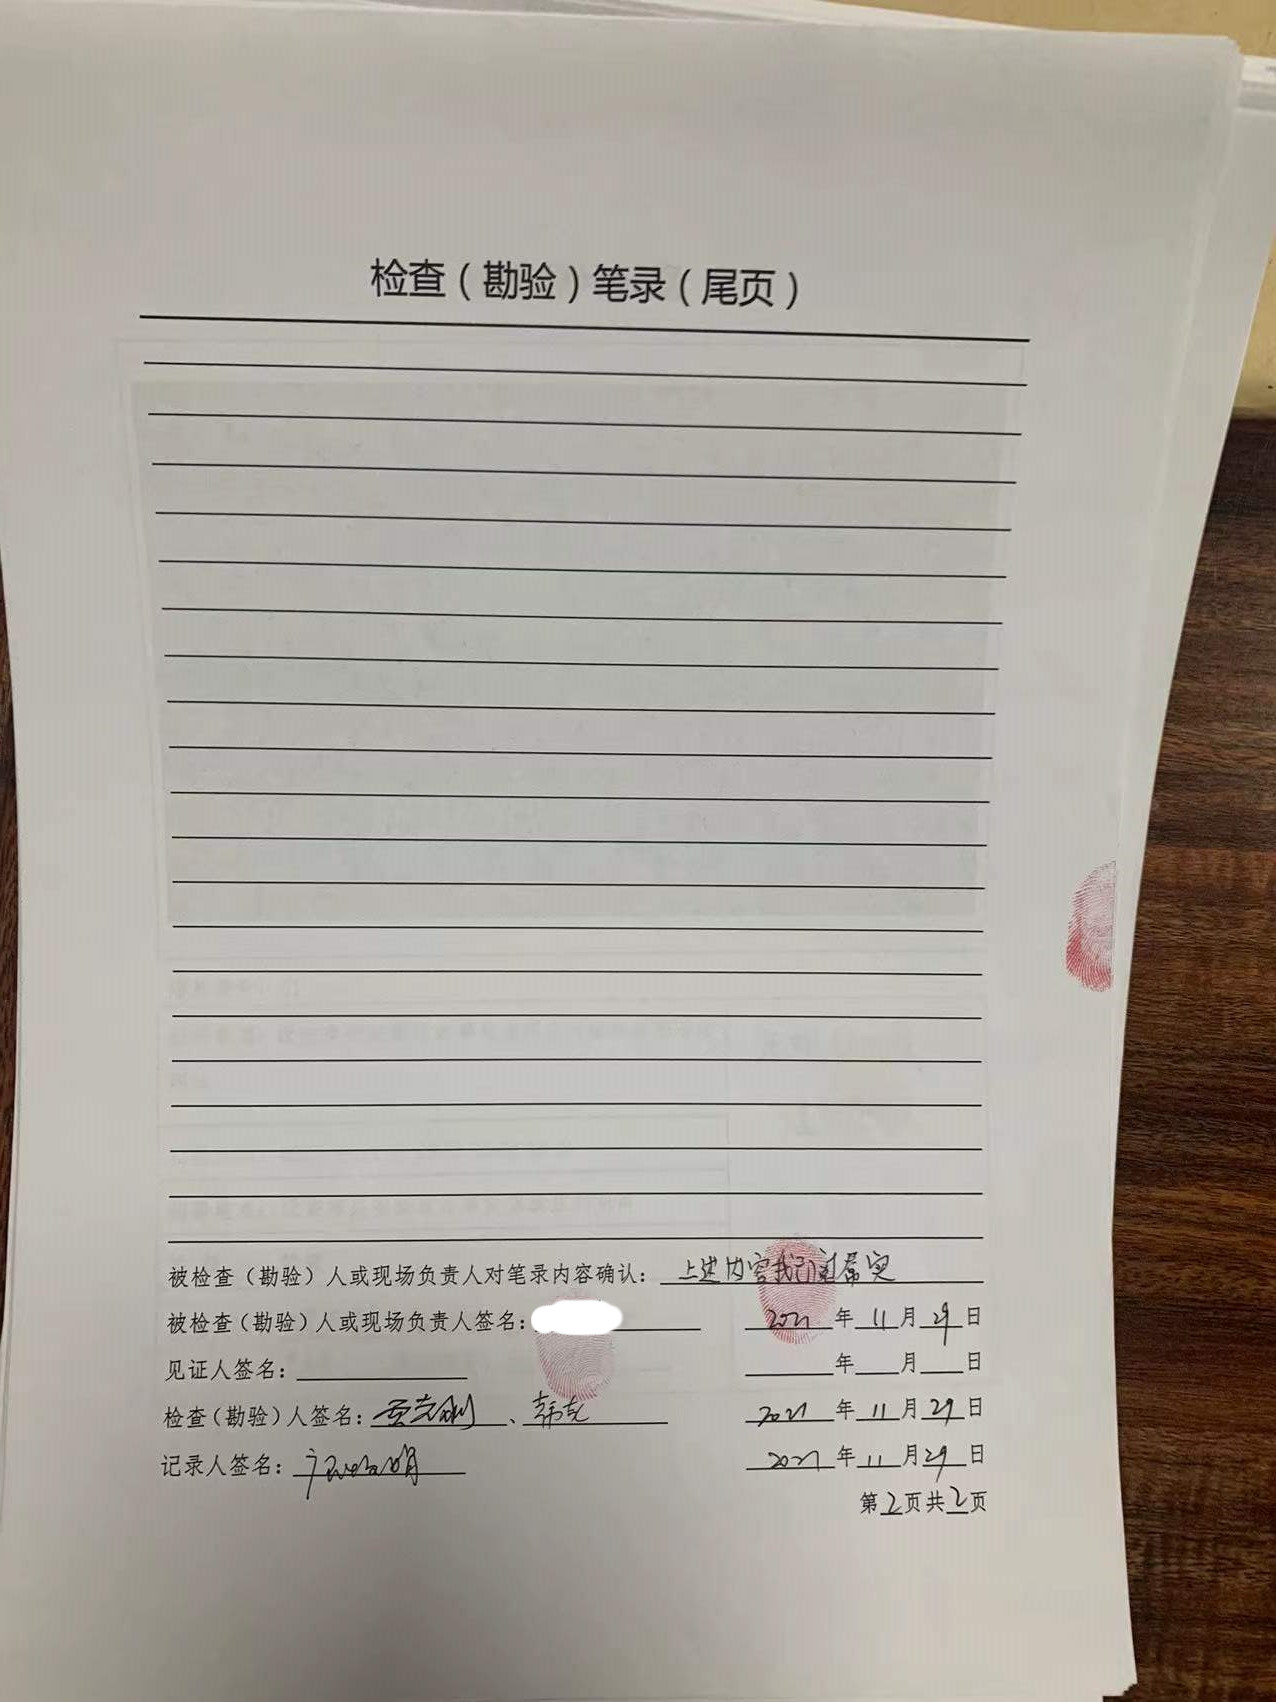 检查（勘验）笔录（尾页）
被检查（勘验）人或现场负责人对笔录内容确认：上述内容我已阅属实
被检查（勘验）人或现场负责人签名： 2021年11月29日
见证人签名： 年 月 日
检查（勘验）人签名： 、韩克 2021年11月29日
记录人签名： 2021年11月29日
第2页共2页